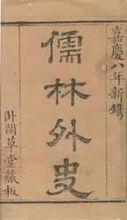 嘉慶八年新鐫
儒林外史
臥閒草堂藏板